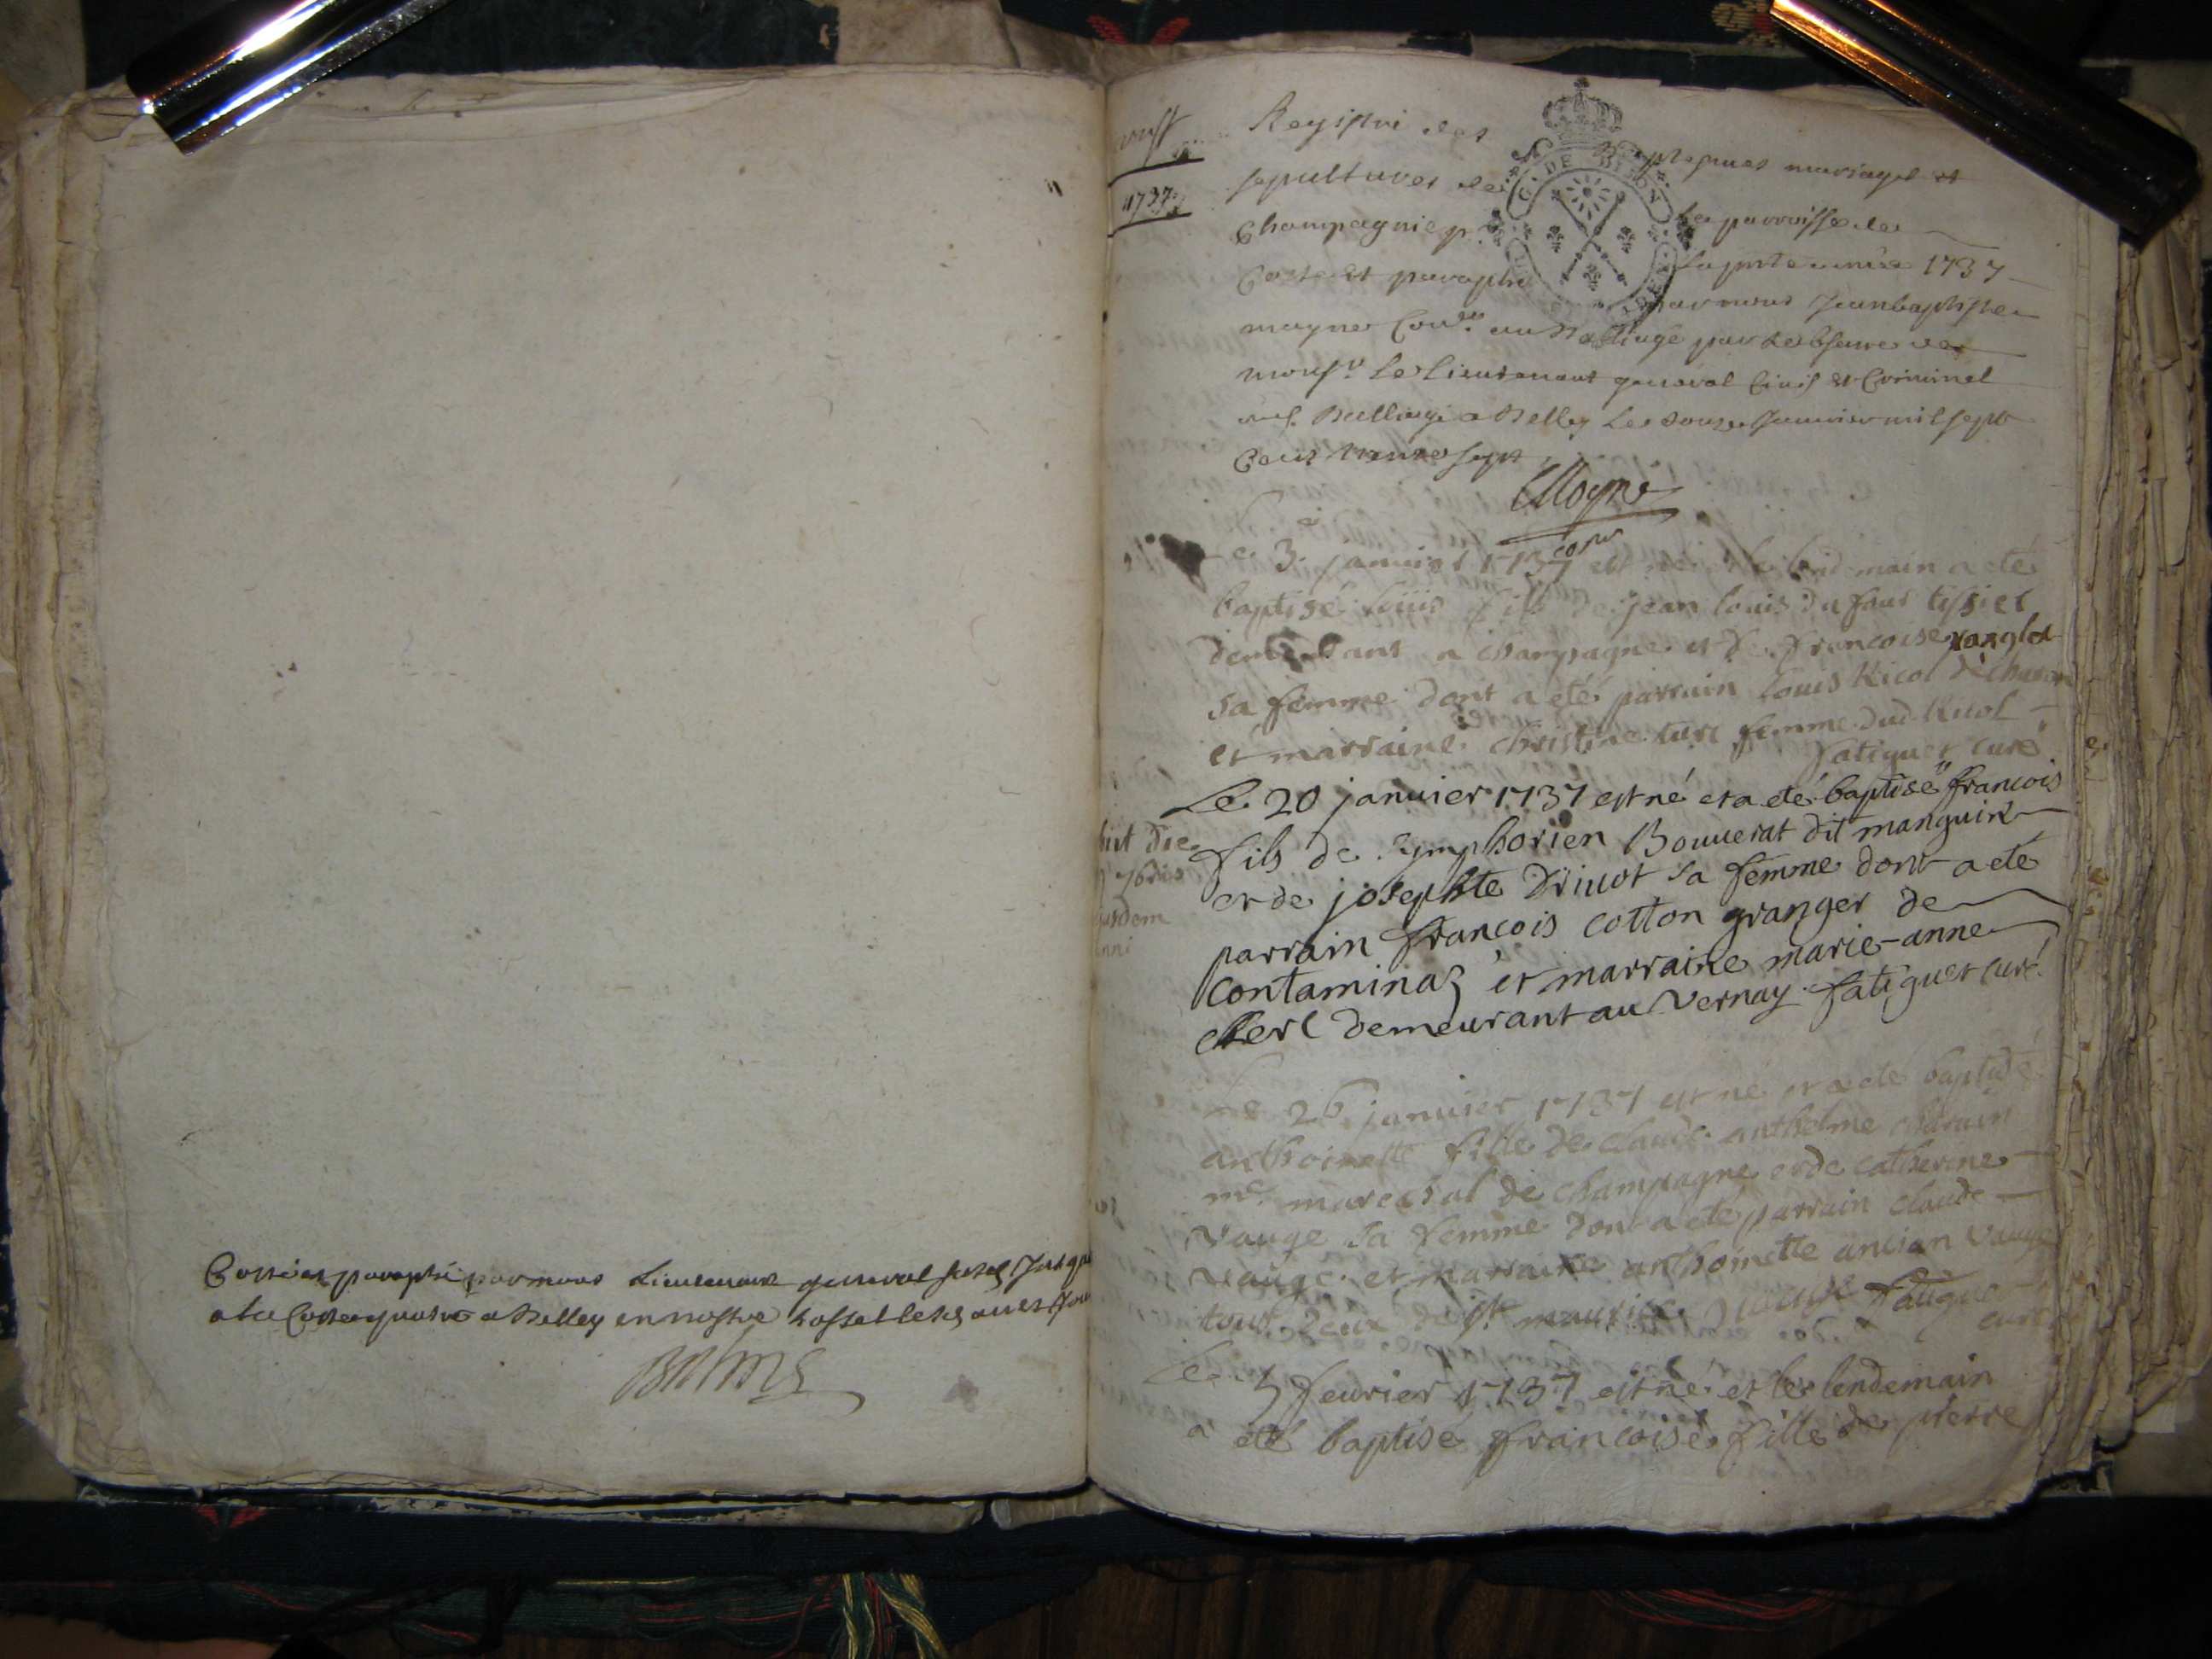 Cotté et paraphé par nous Lieutenant general
a la Cotte quatre a Belley en nostre hostel
1737
Registre des Baptesmes mariages et
sepultures de la parroisse de
Champagnie
Cotté et paraphé par nous Jean baptiste
mayne au Balliage par Labsence de
monsr. Le Lieutenant general Civil et Criminel
Balliage a Belley Le douze Janvier mil sept
Cent trente sept
Moyne
C. DE DIION
Le 3. janvier 1737 est né et le lendemain a eté
baptisé loüis fils de jean louis dufour tissier
demeurant a champagne et de francoise
sa femme dont a eté parrain louis Ricol de
et marraine christine femme dud Ricol
fatiguet curé
Le 20 janvier 1737 est né et a eté baptisé francois
fils de symphorien Bouuerat dit manguin
et de josephte Driuot sa femme dont a eté
parrain francois cotton granger de
contaminaz et marraine marie-anne
clerc demeurant au vernay. fatiguet curé
Le 26 janvier 1737 est né et a eté baptisé
anthoinette fille de claude anthelme
me. marechal de champagne et de catherine
vauge sa femme dont a eté parrain claude
vauge et marraine anthoinette
tout deux de st maurice fatiguet
curé
Le 5 feurier 1737 est né et le lendemain
a eté baptisé francoise fille de pierre